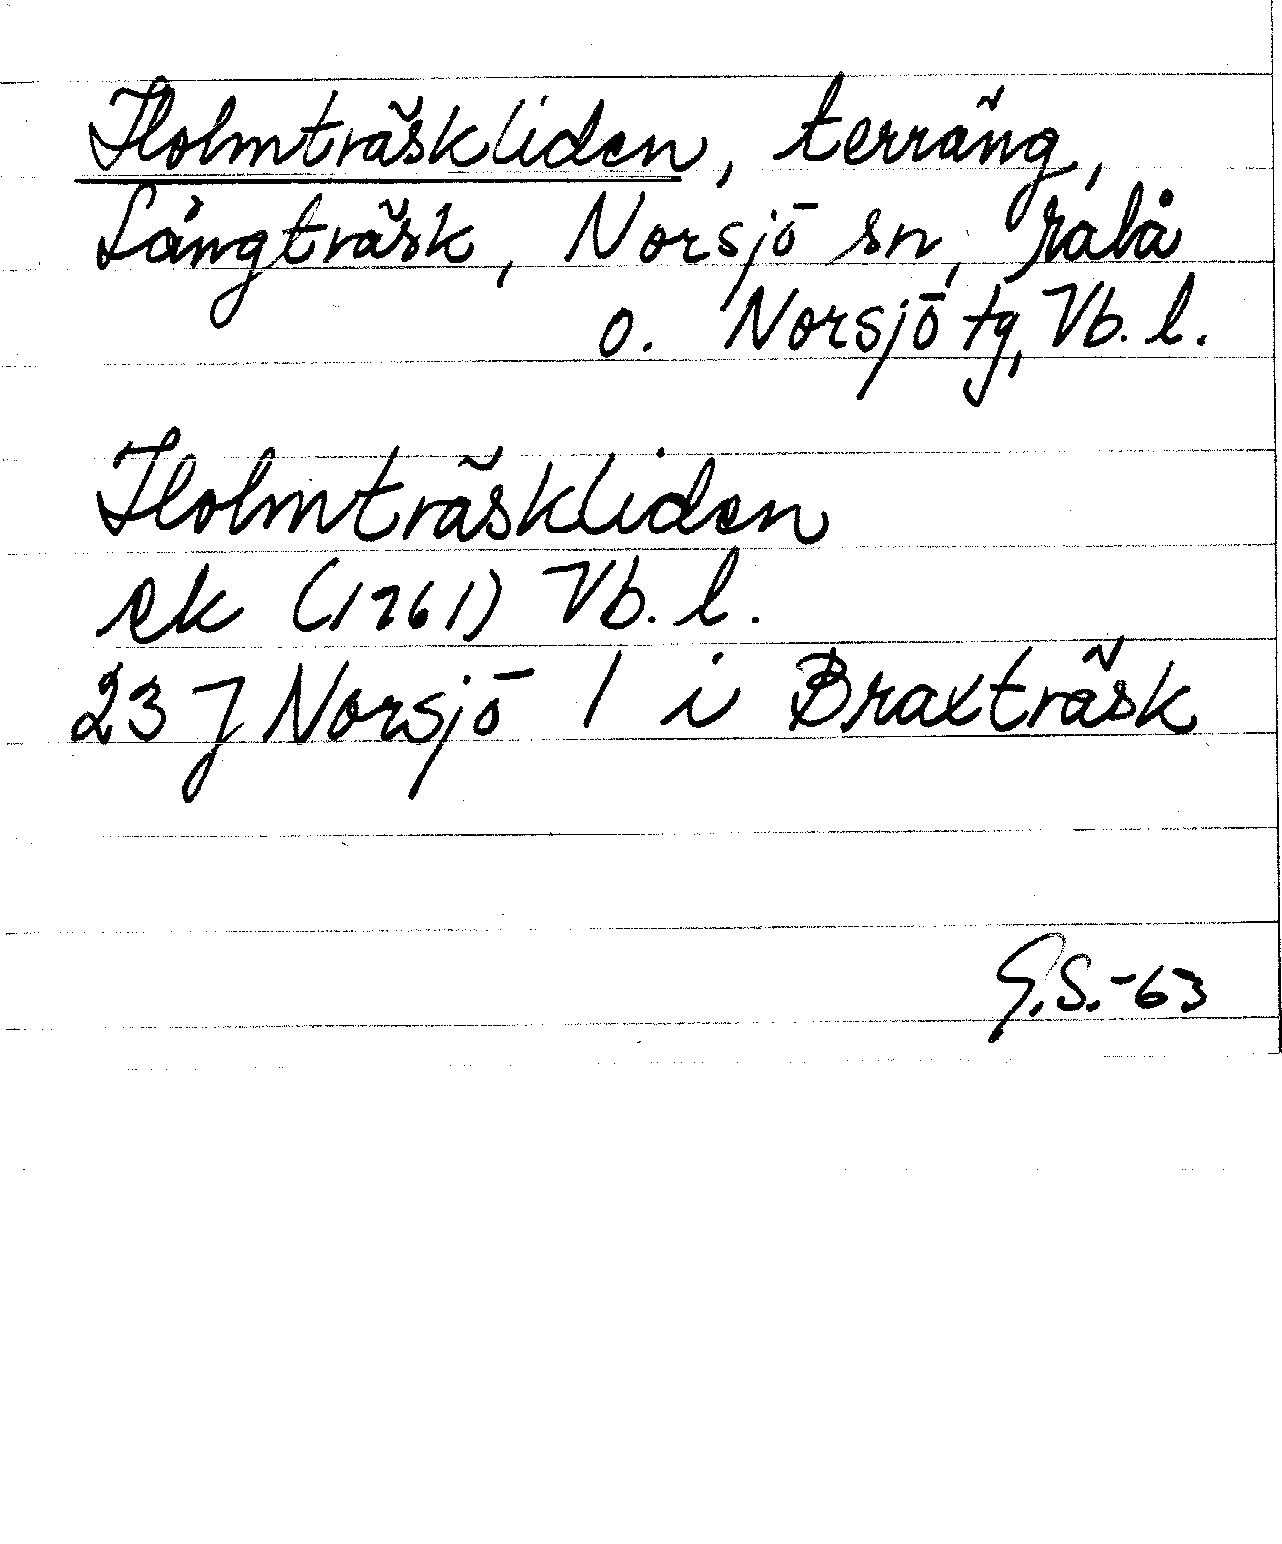 Holmträskliden, terräng,
Långträsk, Norsjö sn, Malå
o. Norsjö tg, Vb. l.
Holmträskliden
ek (1961) Vb. l.
23 J Norsjö 1 i Braxträsk
G.S.-63